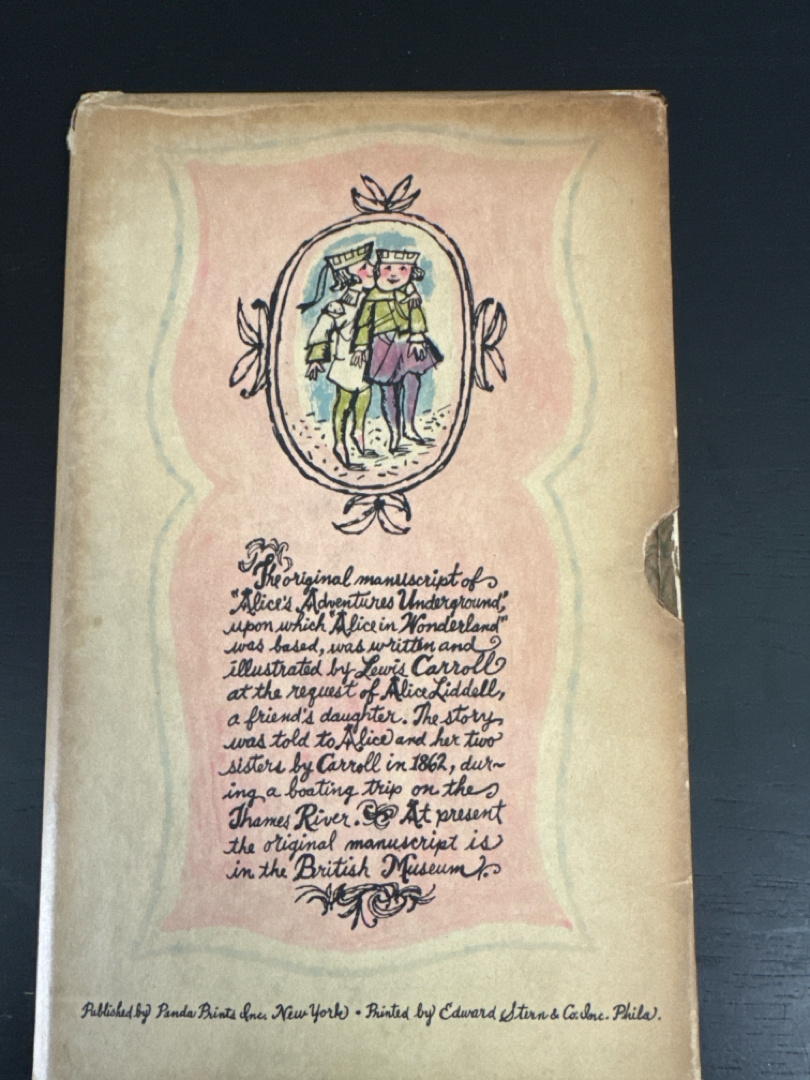 The original manuscript of
"Alice's Adventures Underground",
upon which "Alice in Wonderland"
was based, was written and
illustrated by Lewis Carroll
at the request of Alice Liddell,
a friend's daughter. The story
was told to Alice and her two
sisters by Carroll in 1862, dur~
ing a boating trip on the
Thames River. At present
the original manuscript is
in the British Museum.
Published by Panda Prints Inc. New York • Printed by Edward Stern & Co. Inc. Phila.